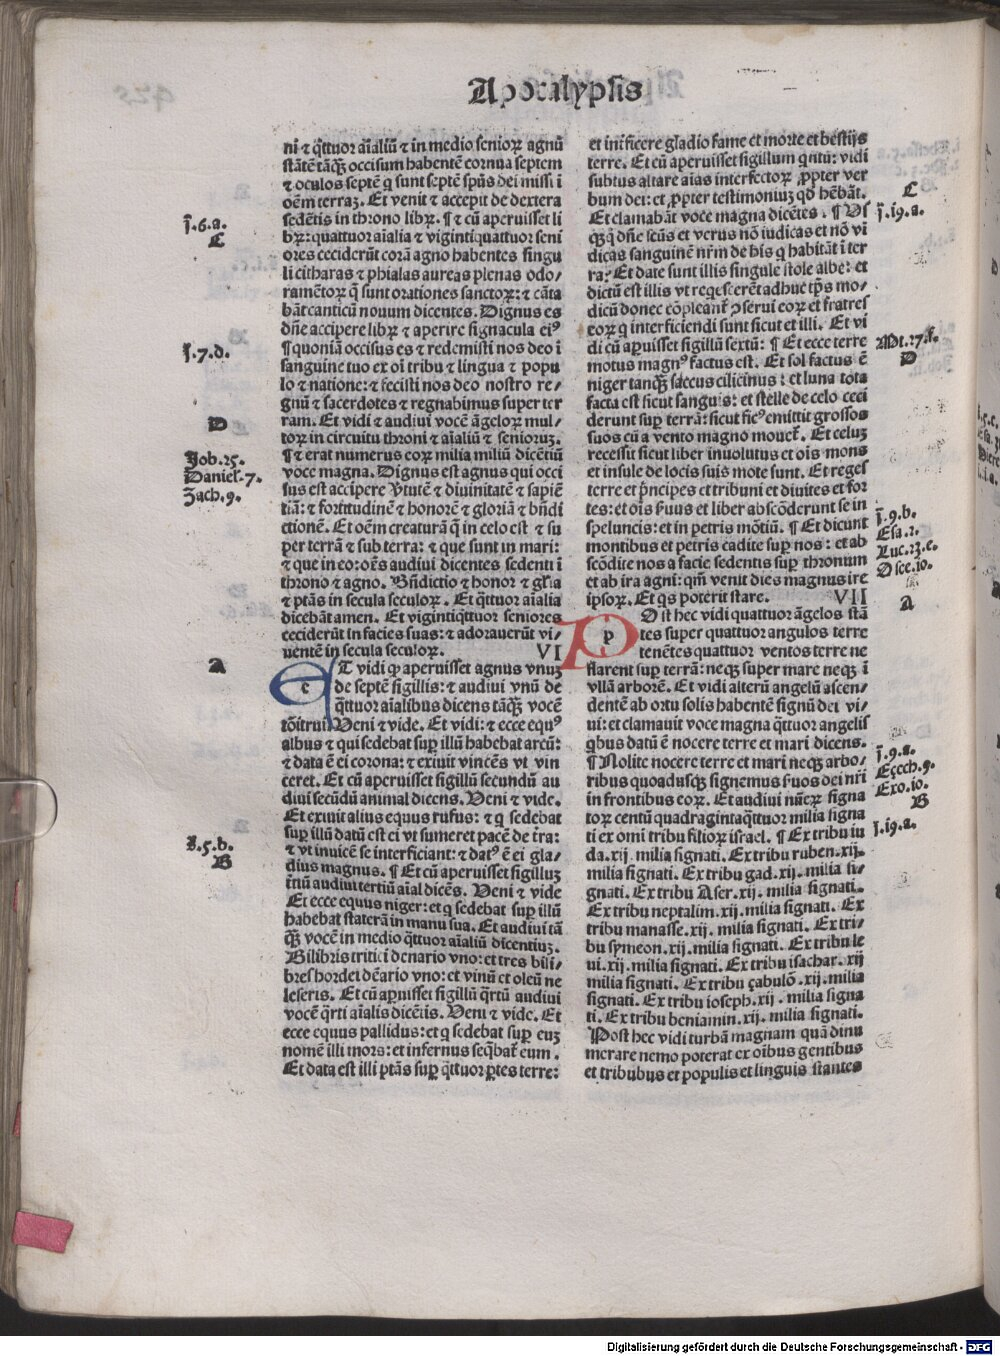 Apocalypsis
ni ⁊ q̄ttuor aĩaliũ ⁊ in medio senioꝝ agnũ
stãtẽ tãq̃ʒ occisum habentẽ cornua septem
⁊ oculos septẽ q̃ sunt septẽ sp̃ũs dei missi ĩ
oẽm terraʒ. Et venit ⁊ accepit de dextera
sedẽtis in throno libꝝ. ¶ ⁊ cũ aperuisset li
bꝝ: quattuor aĩalia ⁊ vigintiquattuor seni
ores ceciderũt corã agno habentes singu
li citharas ⁊ phialas aureas plenas odo/
ramẽtoꝝ q̃ sunt orationes sanctoꝝ: ⁊ cãta
bãt canticũ nouum dicentes. Dignus es
dñe accipere libꝝ ⁊ aperire signacula eiꝰ
¶ quoniã occisus es ⁊ redemisti nos deo ĩ
sanguine tuo ex oĩ tribu ⁊ lingua ⁊ popu
lo ⁊ natione: ⁊ fecisti nos deo nostro re/
gnũ ⁊ sacerdotes ⁊ regnabimus super ter
ram. Et vidi ⁊ audiui vocẽ ãgeloꝝ mul/
toꝝ in circuitu throni ⁊ aĩaliũ ⁊ senioruʒ.
¶ ⁊ erat numerus eoꝝ milia miliũ dicẽtiũ
voce magna. Dignus est agnus qui occi
sus est accipere v̓tutẽ ⁊ diuinitatẽ ⁊ sapiẽ
tiã: ⁊ fortitudinẽ ⁊ honorẽ ⁊ gloriã ⁊ bñdi
ctionẽ. Et oẽm creaturã q̃ in celo est ⁊ su
per terrã ⁊ sub terra: ⁊ que sunt in mari:
⁊ que in eo: oẽs audiui dicentes sedenti ĩ
throno ⁊ agno. Bñdictio ⁊ honor ⁊ gl̃ia
⁊ ptãs in secula seculoꝝ. Et q̄ttuor aĩalia
dicebãt amen. Et vigintiq̄ttuor seniores
ceciderũt in facies suas: ⁊ adorauerũt vi/
uentẽ in secula seculoꝝ. VI
e T vidi ꝙ aperuisset agnus vnuʒ
de septẽ sigillis: ⁊ audiui vnũ de
q̄ttuor aĩalibus dicens tãq̃ʒ vocẽ
tõitrui. Veni ⁊ vide. Et vidi: ⁊ ecce equꝰ
albus ⁊ qui sedebat sup̱ illũ habebat arcũ:
⁊ data ẽ ei corona: ⁊ exiuit vincẽs vt vin
ceret. Et cũ aperuisset sigillũ secundũ au
diui secũdũ animal dicens. Veni ⁊ vide.
Et exiuit alius equus rufus: ⁊ q̇ sedebat
sup̱ illũ datũ est ei vt sumeret pacẽ de t̃ra:
⁊ vt inuicẽ se interficiant: ⁊ datꝰ ẽ ei gla/
dius magnus. ¶ Et cũ aperuisset sigilluʒ
t̃tiũ audiui tertiũ aĩal dicẽs. Veni ⁊ vide
Et ecce equus niger: et q̇ sedebat sup̱ illũ
habebat staterã in manu sua. Et audiui tã
q̃ʒ vocẽ in medio q̄ttuor aĩaliũ dicentiuʒ.
Bilibris tritici denario vno: et tres bili/
bres hordei dẽario vno: et vinũ et oleũ ne
leseris. Et cũ ap̱uisset sigillũ q̄rtũ audiui
vocẽ q̄rti aĩalis dicẽtis. Veni ⁊ vide. Et
ecce equus pallidus: et q̇ sedebat sup̱ euʒ
nomẽ illi mors: et infernus seq̃bat̃ eum.
Et data est illi ptãs sup̱ q̄ttuor p̱tes terre:
et inficere gladio fame et morte et bestijs
terre. Et cũ aperuisset sigillum q̃ntũ: vidi
subtus altare aĩas interfectoꝝ ꝓpter ver
bum dei: et ꝓpter testimoniuʒ qd̃ hẽbãt.
Et clamabãt voce magna dicẽtes. ¶ Vs
q̃ʒq̃ dñe scũs et verus nõ iudicas et nõ vĩ
dicas sanguinẽ nr̃m de his q̇ habitãt ĩ ter
ra? Et date sunt illis singule stole albe: et
dictũ est illis vt req̇escerẽt adhuc tp̃s mo/
dicũ donec cõpleant̃ ꝯserui eoꝝ et fratres
eoꝝ q̇ interficiendi sunt sicut et illi. Et vi
di cũ ap̱uisset sigillũ sextũ: ¶ Et ecce terre
motus magnꝰ factus est. Et sol factus ẽ
niger tanq̃ʒ saccus cilicinus: et luna tota
facta est sicut sanguis: et stelle de celo ceci
derunt sup̱ terrã: sicut ficꝰ emittit grossos
suos cũ a vento magno mouet̃. Et celuʒ
recessit sicut liber inuolutus et oĩs mons
et insule de locis suis mote sunt. Et reges
terre et p̃ncipes et tribuni et diuites et for
tes: et oĩs s̓uus et liber abscõderunt se in
speluncis: et in petris mõtiũ. ¶ Et dicunt
montibus et petris cadite sup̱ nos: et ab
scõdite nos a facie sedentis sup̱ thronum
et ab ira agni: qm̃ venit dies magnus ire
ipsoꝝ. Et q̇s poterit stare. VII
p Ost hec vidi quattuor ãgelos stã
tes super quattuor angulos terre
tenẽtes quattuor ventos terre ne
flarent sup̱ terrã: neqʒ super mare neqʒ ĩ
vllã arborẽ. Et vidi alterũ angelũ ascen/
dentẽ ab ortu solis habentẽ signũ dei vi/
ui: et clamauit voce magna q̄ttuor angelis
q̇bus datũ ẽ nocere terre et mari dicens.
¶ Nolite nocere terre et mari neqʒ arbo/
ribus quoadusqʒ signemus s̓uos dei nr̃i
in frontibus eoꝝ. Et audiui nũeꝝ signa
toꝝ centũ quadragintaq̄ttuor milia signa
ti ex omni tribu filioꝝ israel. ¶ Ex tribu iu
da .xij. milia signati. Ex tribu ruben .xij.
milia signati. Ex tribu gad .xij. milia si/
gnati. Ex tribu Aser .xij. milia signati.
Ex tribu neptalim .xij. milia signati. Ex
tribu manasse .xij. milia signati. Ex tri/
bu symeon .xij. milia signati. Ex tribu le
ui .xij. milia signati. Ex tribu isachar .xij
milia signati. Ex tribu çabulõ .xij. milia
signati. Ex tribu ioseph .xij. milia signa
ti. Ex tribu beniamin .xij. milia signati.
Post hec vidi turbã magnam quã dinu
merare nemo poterat ex oĩbus gentibus
et tribubus et populis et linguis stantes
J̃.6.a.
C
J̃.7.d.
D
Job.25.
Daniel̃.7.
Zach.9.
A
S̃.5.b.
B
C
J̃.19.a.
Mt.27.f.
D
J̃.9.b.
Esa.2.
Luc.23.e.
Osee.10.
A
J̃.9.a.
Eçech.9.
Exo.10.
B
J̃.19.a.
Digitalisierung gefördert durch die Deutsche Forschungsgemeinschaft - DFG